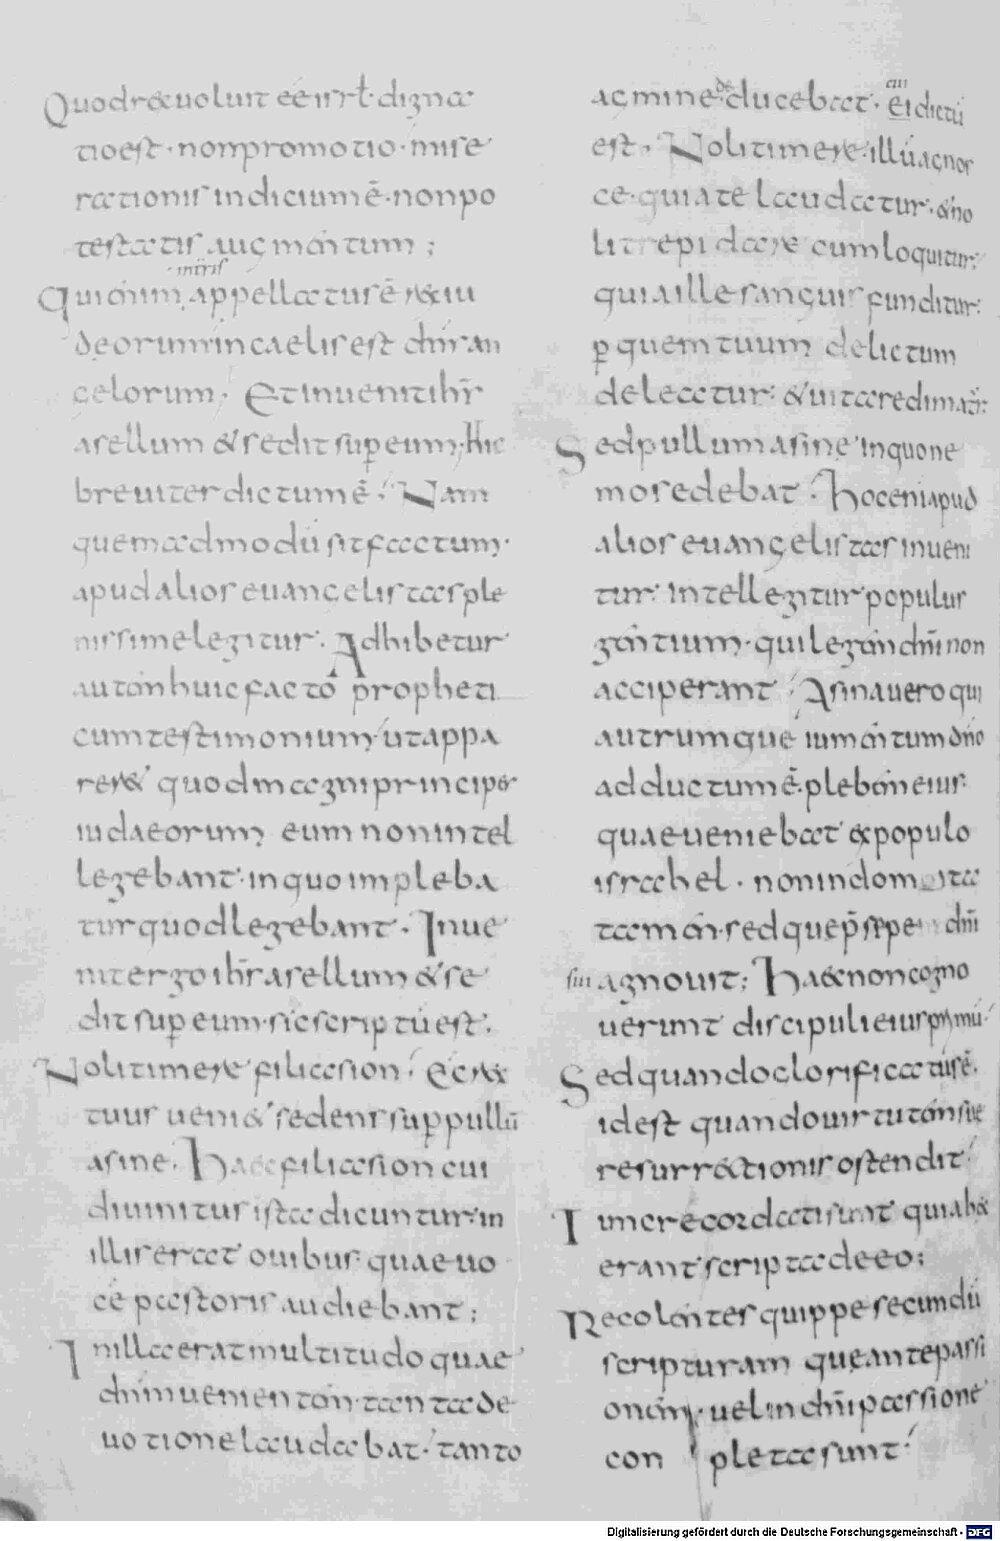 Quod rex uoluit eē isrl· digna
tio est· non promotio· mise
rationis indicium ē· non po
testatis augmentum;
in terris
Qui enim appellatus ē rex iu
deorum in caelis est dns an
gelorum· Et inuenit ihs
asellum & sedit sup eum· Hic
breuiter dictum ē· Nam
quemadmodū sit factum·
apud alios euangelistas ple
nissime legitur· Adhibetur
autem huic facto propheti
cum testimonium· ut appa
reret quod maligni principes
iudaeorum eum non intel
legebant· in quo impleba
tur quod legebant· Inue
nit ergo ihs asellum & se
dit sup eum· sic scriptū est·
Noli timere filia sion· Ecce rex
tuus uenit sedens sup pullū
asine· Haec filia sion cui
diuinitus ista dicuntur· in
illis erat ouibus· quae uo
cē pastoris audiebant;
In illa erat multitudo quae
dnm uenientem tanta de
uotione laudabat· tanto
agmine ducebat· ei dictū
est· Noli timere· illū agnos
ce· qui a te laudatur· & no
li trepidare cum loquitur·
quia ille sanguis funditur·
p quem tuum delictum
deleatur· & uita redimat·
Sed pullum asine in quo ne
mo sedebat· hoc eni apud
alios euangelistas inueni
tur· intellegitur populus
gentium· qui legem dni non
acciperant· Asina uero qui
a utrumque iumentum dno
adductum ē· plebem eius·
quae ueniebat ex populo
israhel· non indomita
tamen· sed que psepe dni
sui agnouit; Haec non cogno
uerunt discipuli eius primū·
Sed quando glorificatus ē·
id est quando uirtutem sue
resurrectionis ostendit·
Tunc recordati sunt quia haec
erant scripta de eo;
Recolentes quippe secundū
scripturam que ante passi
onem· uel in dni passione
con pleta sunt·
Digitalisierung gefördert durch die Deutsche Forschungsgemeinschaft - DFG